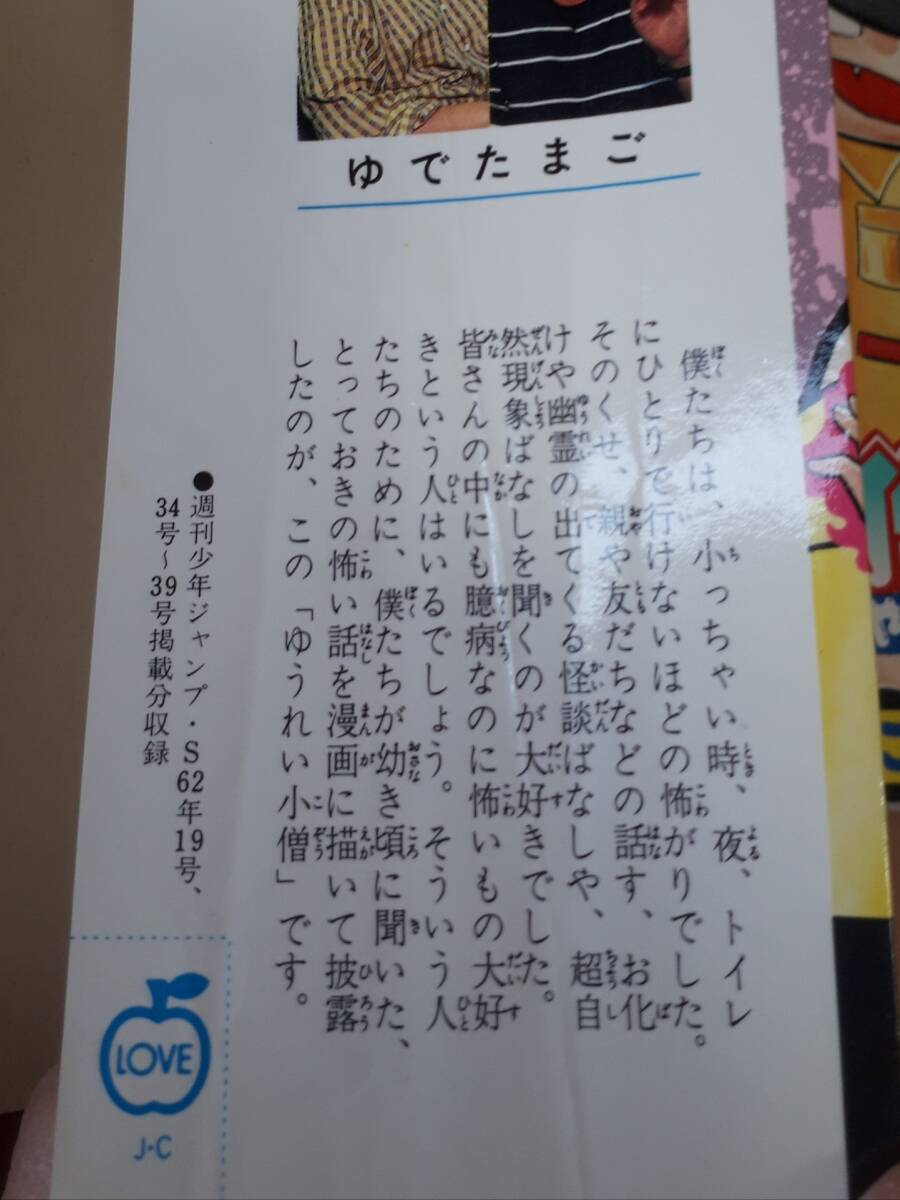 ゆでたまご
僕たちは、小っちゃい時、夜、トイレ
にひとりで行けないほどの怖がりでした。
そのくせ、親や友だちなどの話す、お化
けや幽霊の出てくる怪談ばなしや、超自
然現象ばなしを聞くのが大好きでした。
皆さんの中にも臆病なのに怖いもの大好
きという人はいるでしょう。そういう人
たちのために、僕たちが幼き頃に聞いた、
とっておきの怖い話を漫画に描いて披露
したのが、この「ゆうれい小僧」です。
●週刊少年ジャンプ・S62年19号、
34号〜39号掲載分収録
LOVE
J・C